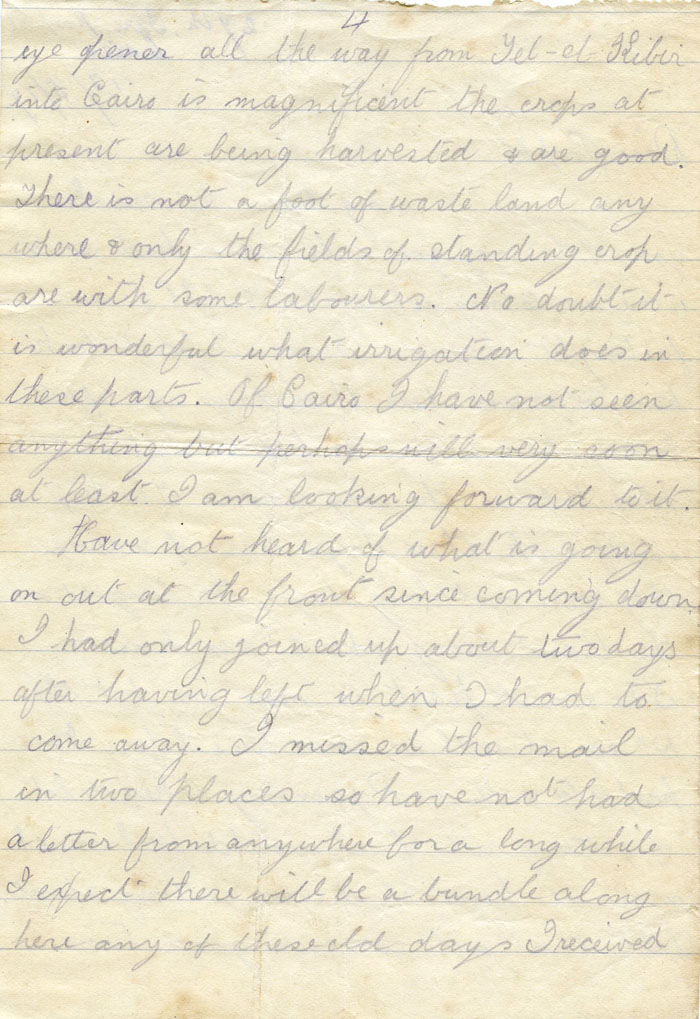 4
eye opener all the way from Tel-el-Kibir
into Cairo is magnificent the crops at
present are being harvested & are good.
There is not a foot of waste land any
where & only the fields of standing crop
are with some labourers. No doubt it
is wonderful what irrigation does in
these parts. Of Cairo I have not seen
anything but perhaps will very soon
at least I am looking forward to it.
Have not heard of what is going
on out at the front since coming down,
I had only joined up about two days
after having left when I had to
come away. I missed the mail
in two places so have not had
a letter from anywhere for a long while
I expect there will be a bundle along
here any of these old days I received